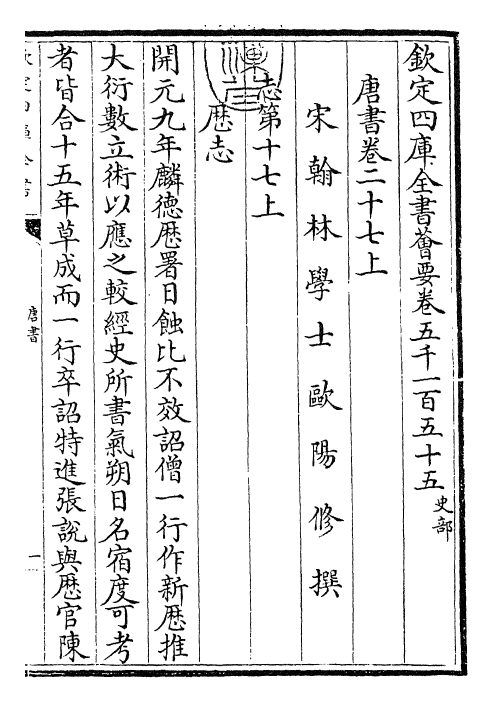 欽定四庫全書薈要卷五千一百五十五史部
唐書卷二十七上
宋翰林學士歐陽修撰
志第十七上
歴志
開元九年麟德歴署日蝕比不效詔僧一行作新歴推
大衍數立術以應之較經史所書氣朔日名宿度可考
者皆合十五年草成而一行卒詔特進張說與歴官陳
唐書
一